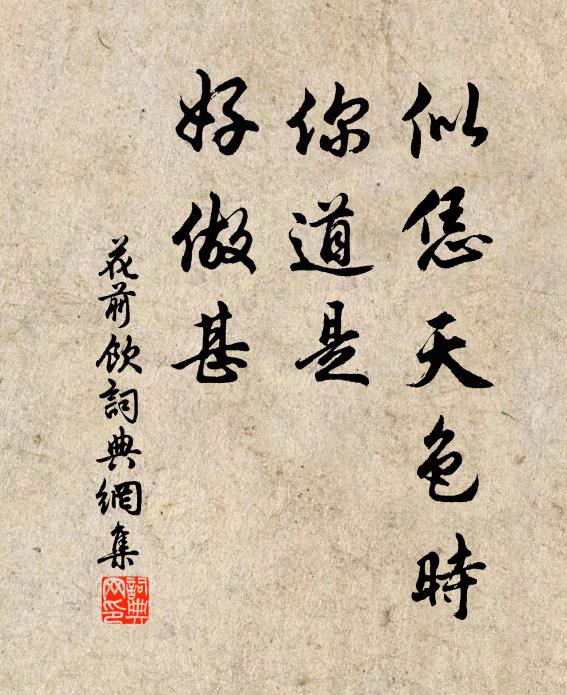 似恁天色時
你道是
好做甚
花前飲詞典網集
詞典
网印